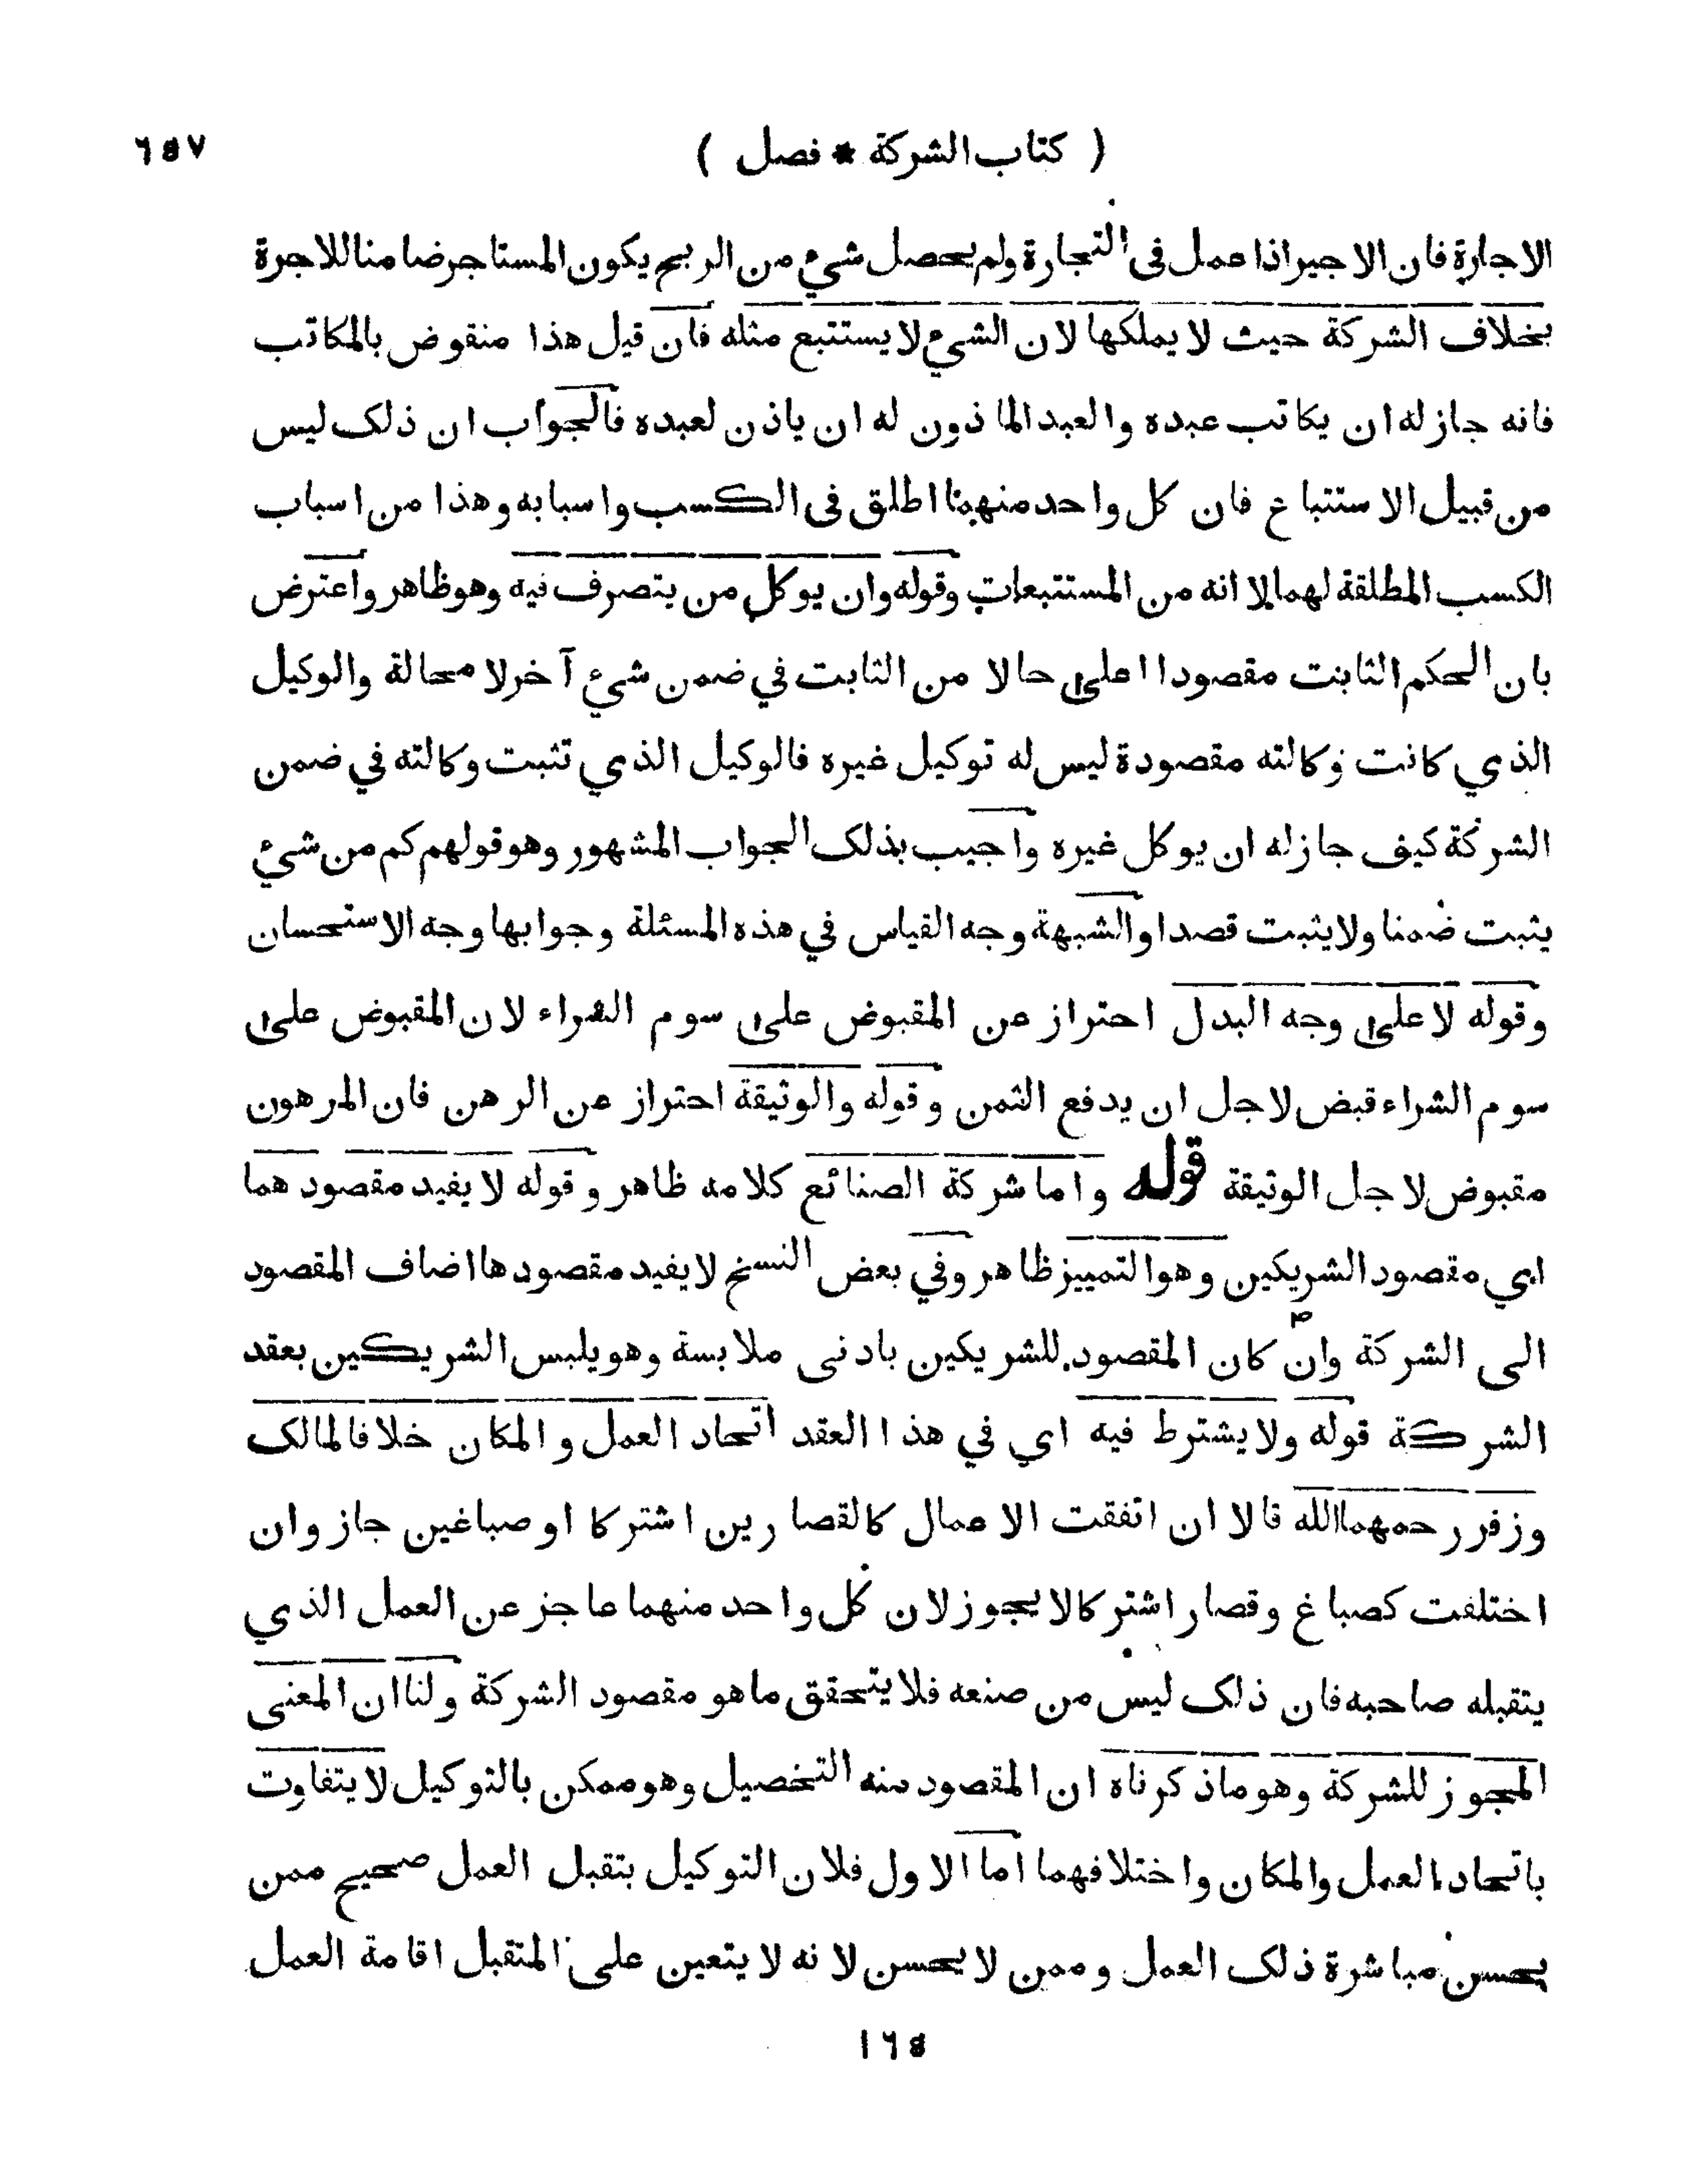 ( كتاب الشركة * فصل )
٦٥٧
الاجارة فان الاجير اذا عمل فى التجارة ولم يحصل شيء من الربح يكون المستاجر ضامنا للاجرة
بخلاف الشركة حيث لا يملكها لان الشيء لا يستتبع مثله فان قيل هذا منقوض بالمكاتب
فانه جاز له ان يكاتب عبده والعبد الماذون له ان ياذن لعبده فالجواب ان ذلك ليس
من قبيل الاستتباع فان كل واحد منهما اطلق فى الكسب واسبابه وهذا من اسباب
الكسب المطلقة لهما لا انه من المستتبعات وقوله وان يوكل من يتصرف فيه وهو ظاهر واعترض
بان الحكم الثابت مقصودا اعلى حالا من الثابت في ضمن شيء آخر لا محالة والوكيل
الذي كانت وكالته مقصودة ليس له توكيل غيره فالوكيل الذي تثبت وكالته في ضمن
الشركة كيف جاز له ان يوكل غيره واجيب بذلك الجواب المشهور وهو قولهم كم من شيء
يثبت ضمنا ولا يثبت قصدا والشبهة وجه القياس في هذه المسئلة وجوابها وجه الاستحسان
وقوله لا على وجه البدل احتراز عن المقبوض على سوم الشراء لان المقبوض على
سوم الشراء قبض لاجل ان يدفع الثمن وقوله والوثيقة احتراز عن الرهن فان المرهون
مقبوض لاجل الوثيقة قوله واما شركة الصنائع كلامه ظاهر وقوله لا يفيد مقصودهما
اي مقصود الشريكين وهو التمييز ظاهر وفي بعض النسخ لا يفيد مقصودها اضاف المقصود
الى الشركة وان كان المقصود للشريكين بادنى ملابسة وهو يلبس الشريكين بعقد
الشركة قوله ولا يشترط فيه اي في هذا العقد اتحاد العمل والمكان خلافا لمالك
وزفر رحمهما الله قالا ان اتفقت الاعمال كالقصارين اشتركا او صباغين جاز وان
اختلفت كصباغ وقصار اشتركا لا يجوز لان كل واحد منهما عاجز عن العمل الذي
يتقبله صاحبه فان ذلك ليس من صنعه فلا يتحقق ما هو مقصود الشركة ولنا ان المعنى
المجوز للشركة وهو ماذكرناه ان المقصود منه التحصيل وهو ممكن بالتوكيل لا يتفاوت
باتحاد العمل والمكان واختلافهما اما الاول فلان التوكيل بتقبل العمل صحيح ممن
يحسن مباشرة ذلك العمل وممن لا يحسن لانه لا يتعين على المتقبل اقامة العمل
١٦٥